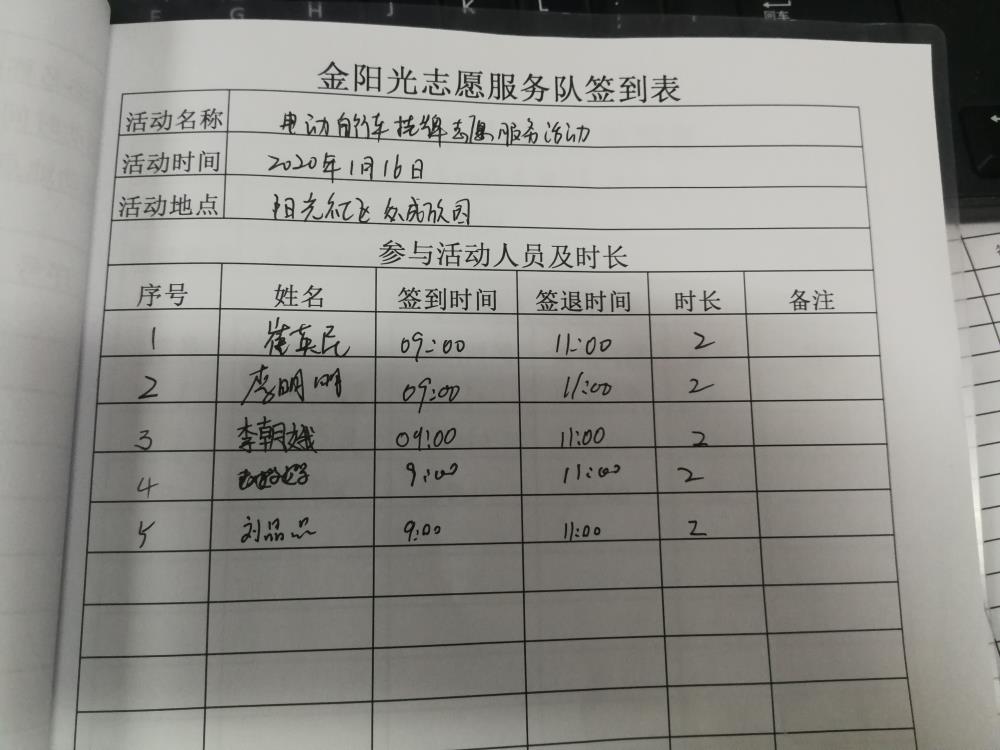 G H J K L
回车
金阳光志愿服务队签到表
活动名称 电动自行车挂牌志愿服务活动
活动时间 2020年1月16日
活动地点 阳光红飞 众成欣园
参与活动人员及时长
序号 姓名 签到时间 签退时间 时长 备注
1 崔英民 09:00 11:00 2
2 李明明 09:00 11:00 2
3 李朝娥 09:00 11:00 2
4 9:00 11:00 2
5 刘品品 9:00 11:00 2